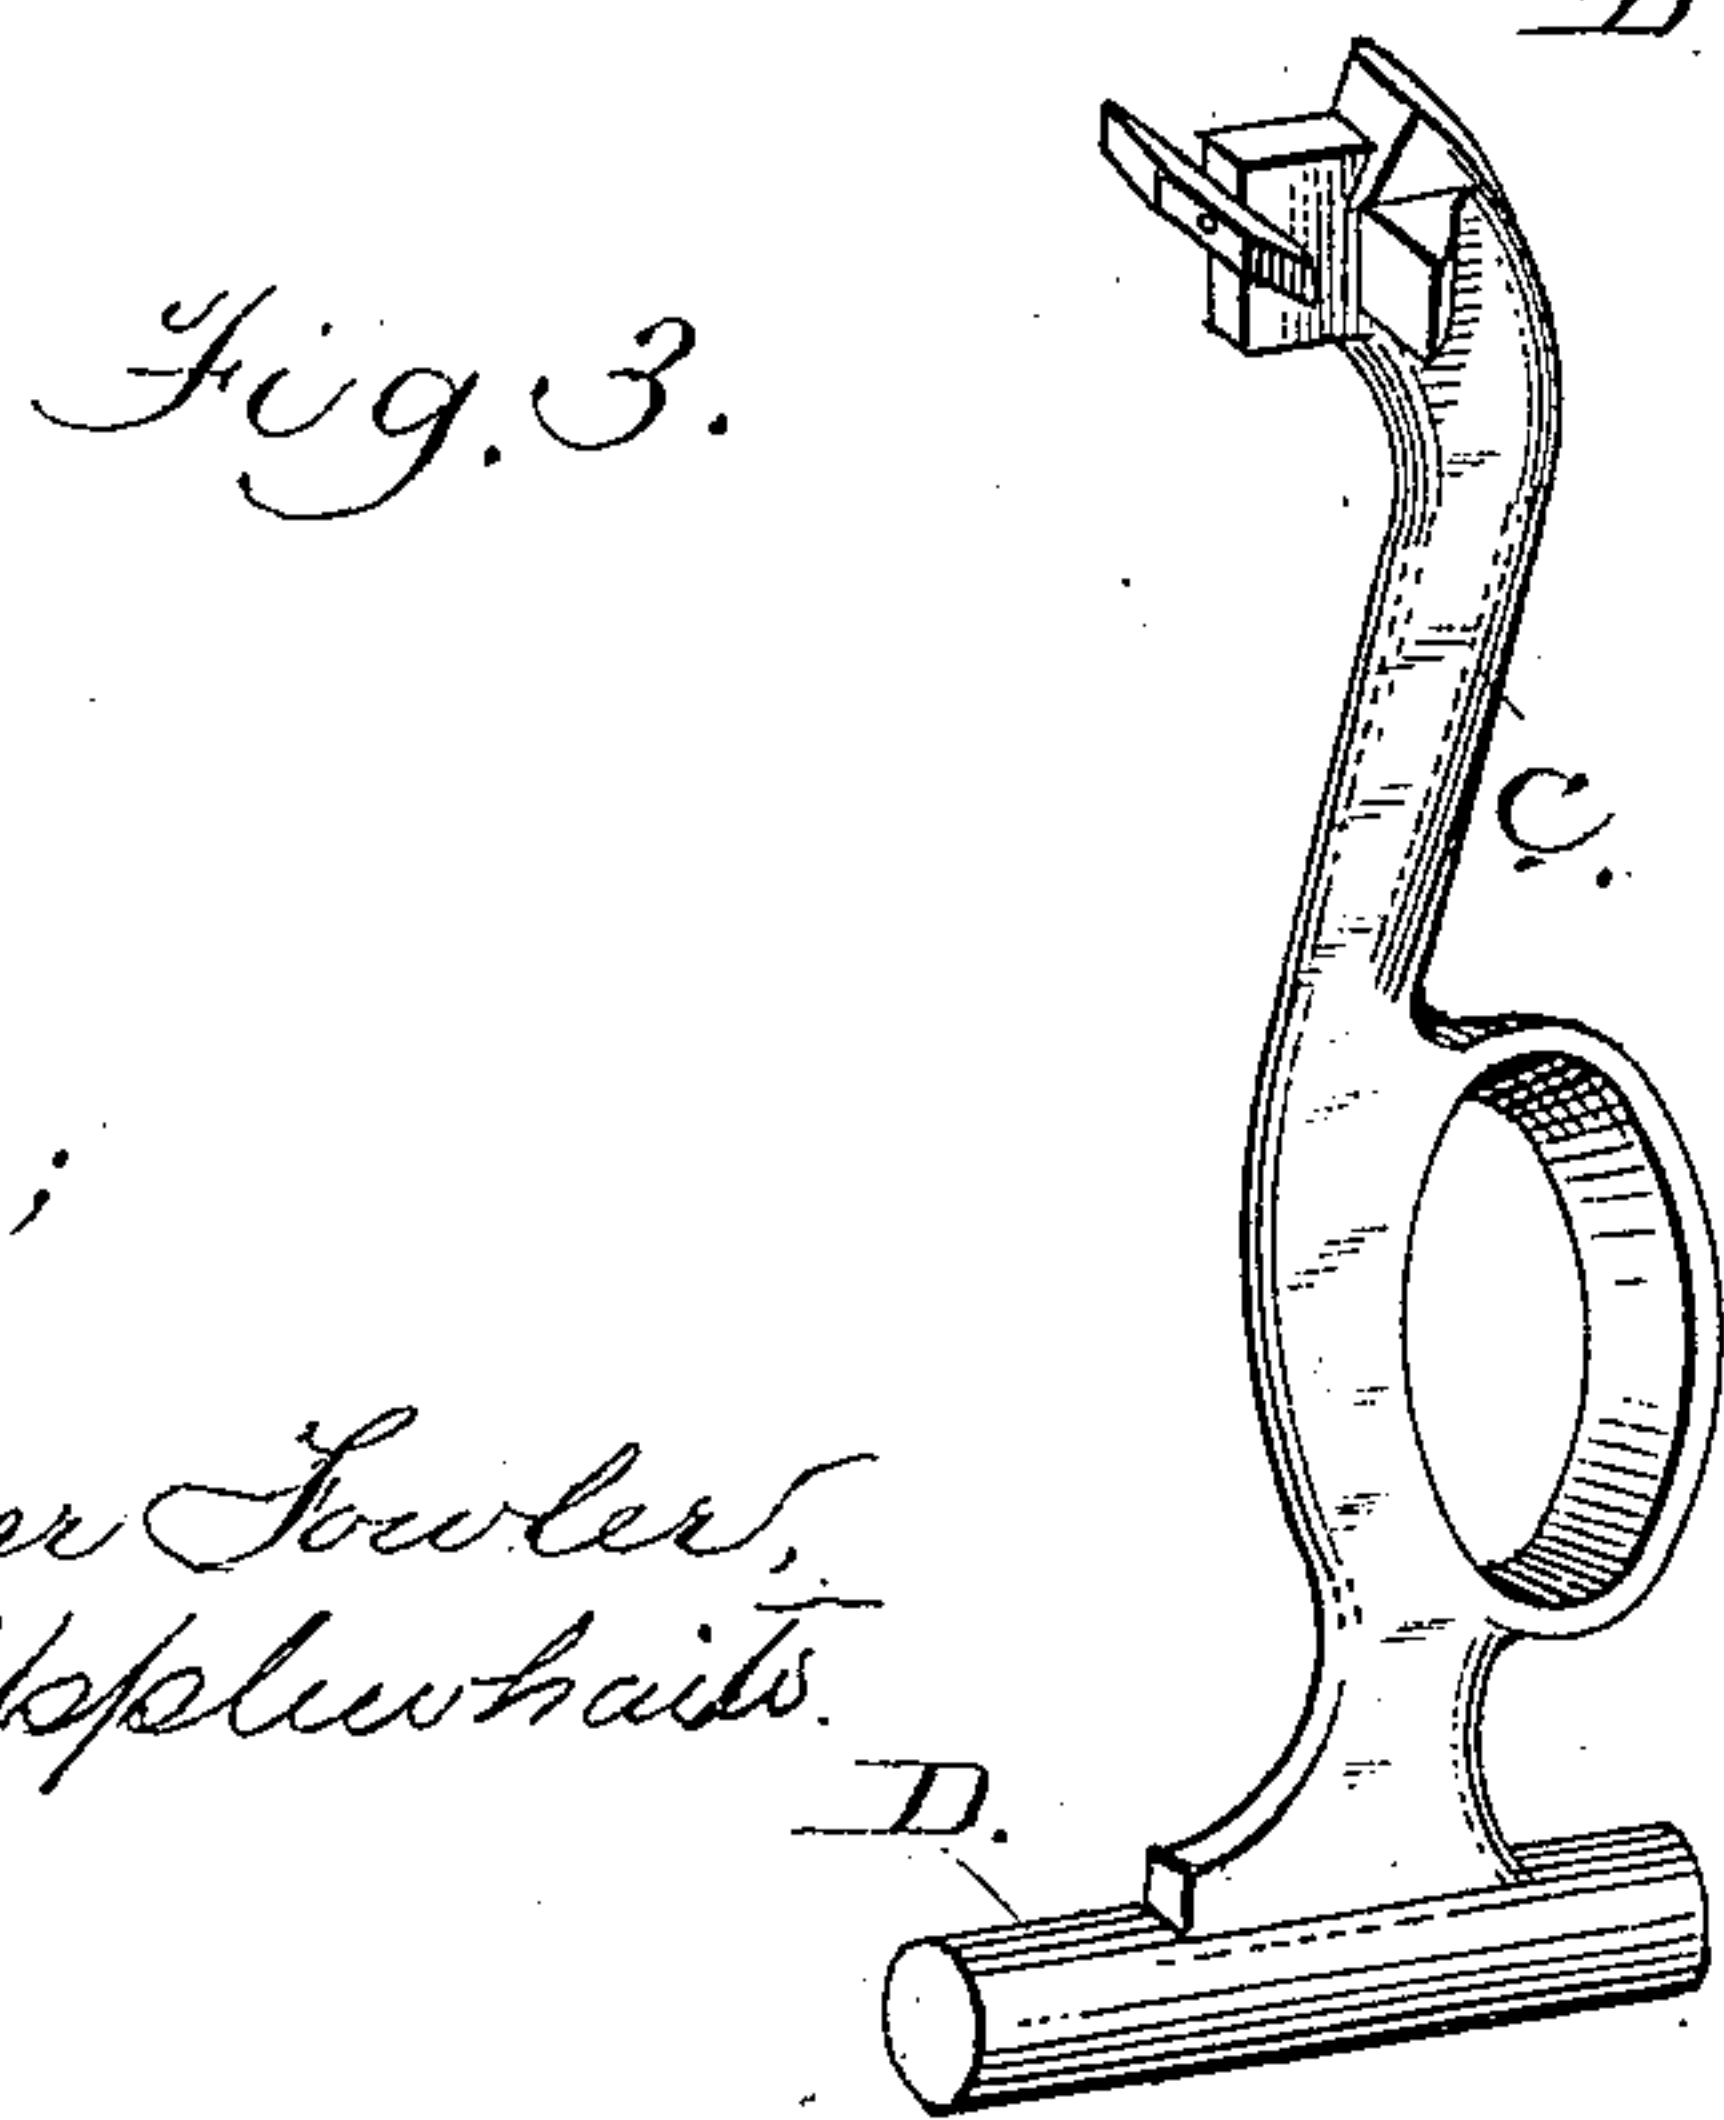 D
Fig. 3.
C.
;
er Fowler,
D.